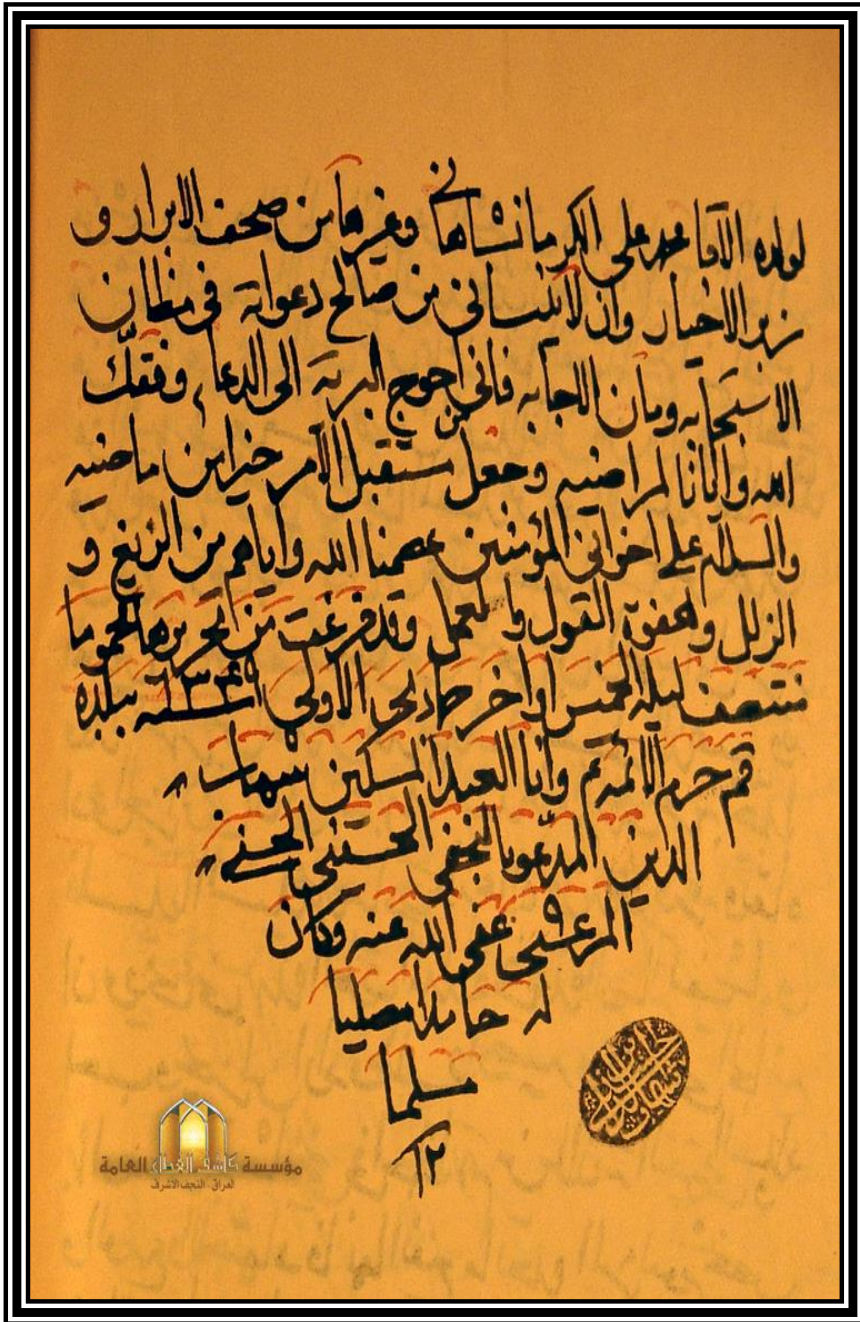 لولده الآقا محمد علي الكرمانشاهاني وغيرها من صحف الابرار و
زبر الاخيار وان لا ينساني من صالح دعواته في مظان
الاستجابه ومان الاجابه فاني احوج البرية الى الدعاء وفقك
الله وايانا لمراضيه وجعل مستقبل الامر خيرا من ماضيه
والسلام على اخواني المؤمنين عصمنا الله واياهم من الزيغ و
الزلل وهفوة القول والعمل وقد فرغت من تحريرها محموما
منتصف ليلة الخميس اواخر جمادى الاولى سنة ببلدة
قم حرم الائمة وانا العبد المسكين شهاب
الدين المدعو بالنجفي الحسيني الحسني
المرعشي عفى الله عنه وكان
له حامدا مصليا
مسلما
١٢
مؤسسة كاشف الغطاء العامة
العراق - النجف الاشرف